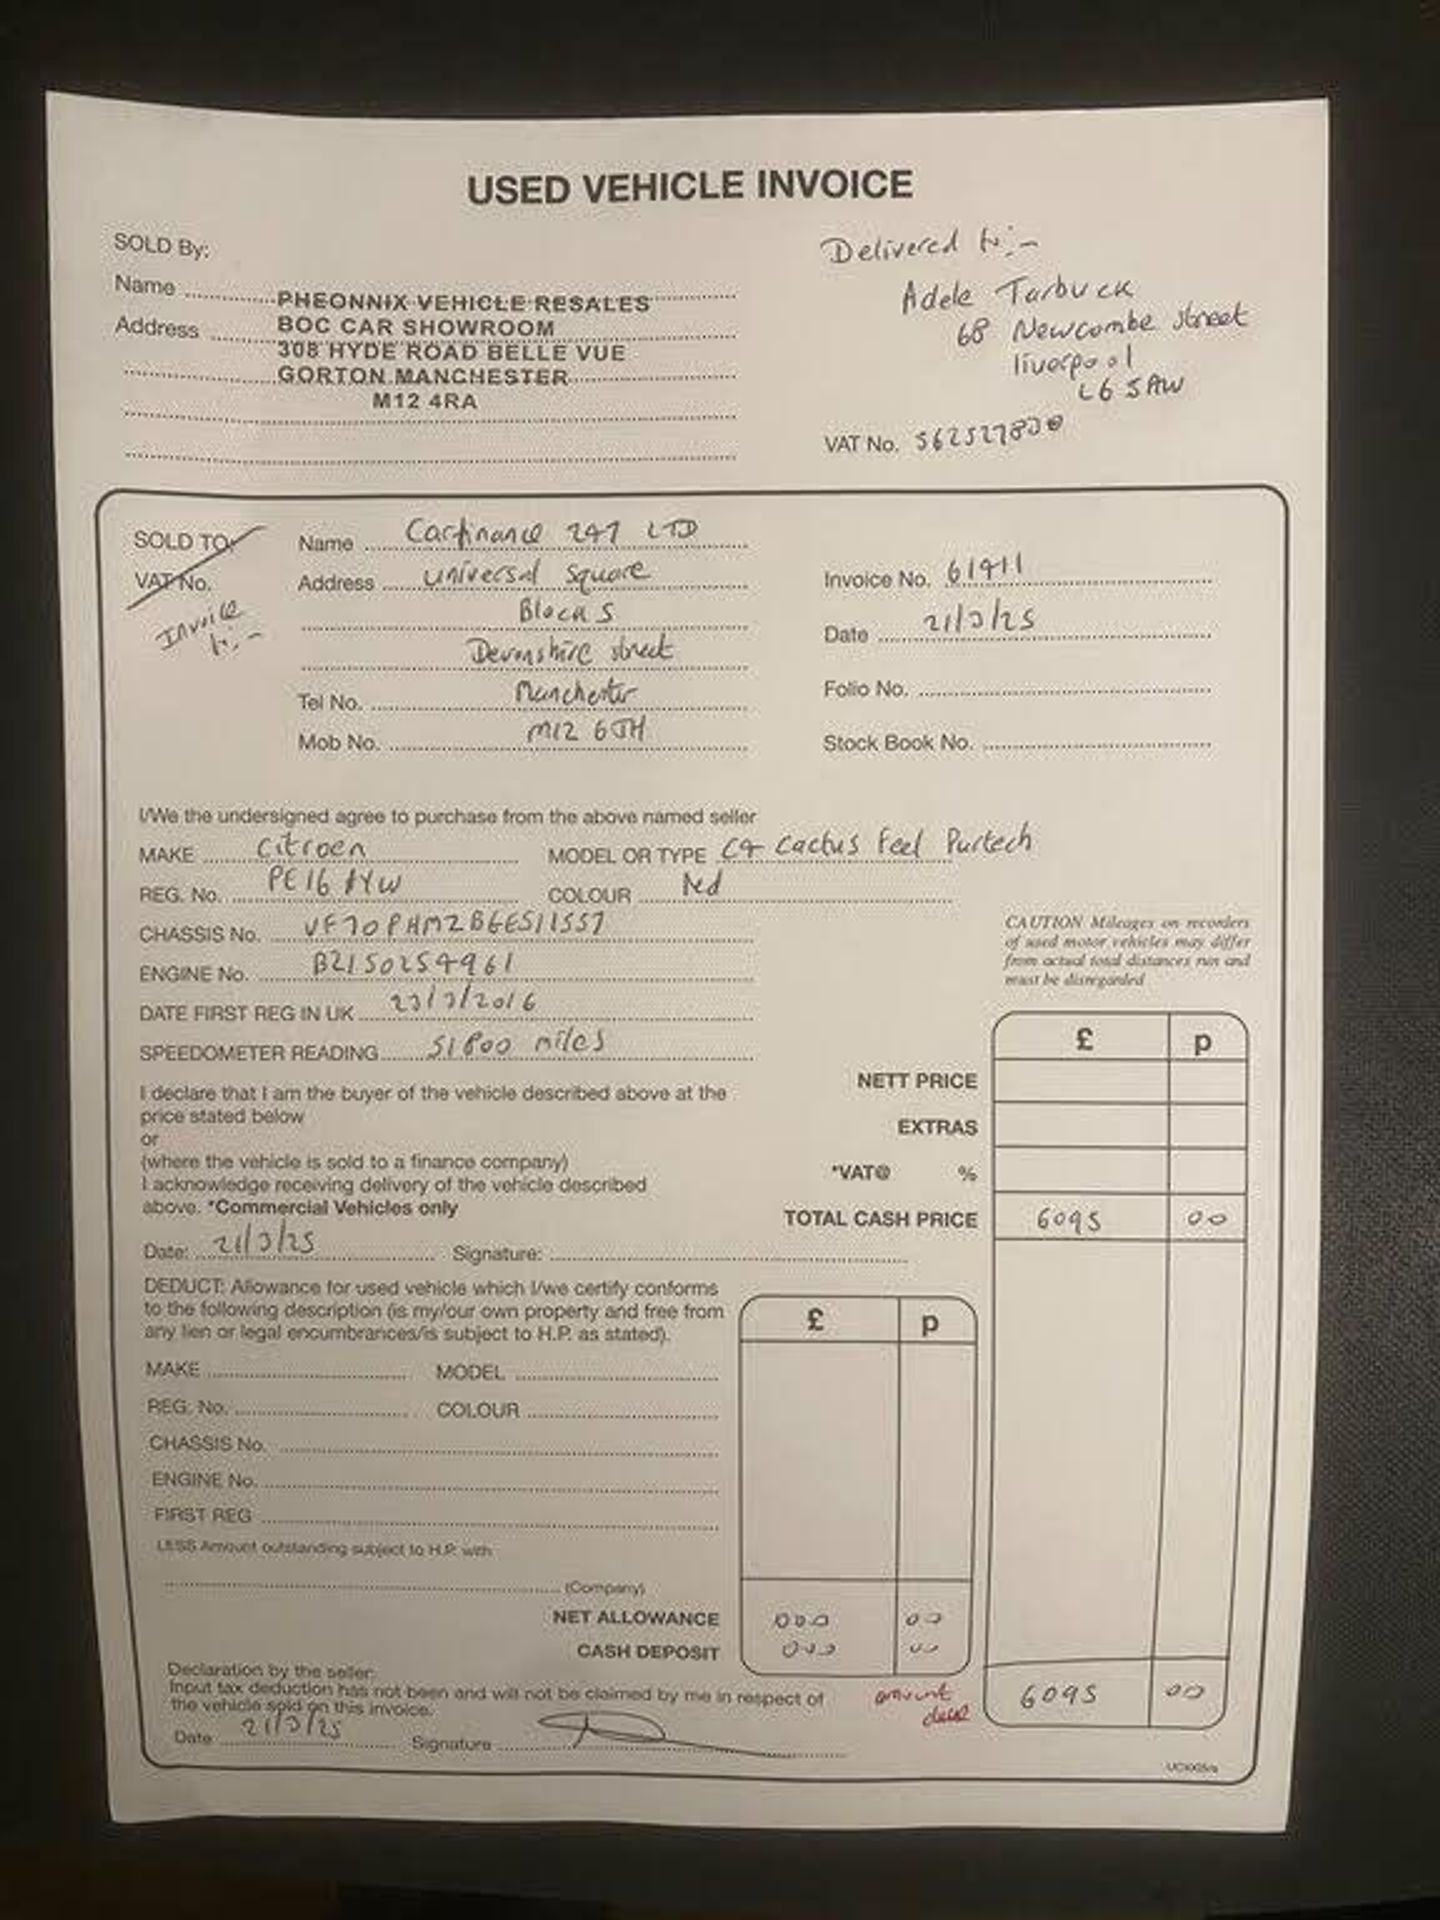 USED VEHICLE INVOICE
SOLD By:
Name
PHEONNIX VEHICLE RESALES
Address
BOC CAR SHOWROOM
308 HYDE ROAD BELLE VUE
GORTON MANCHESTER
M12 4RA
Delivered to:-
Adele Tarbuck
68 Newcombe Street
liverpool
L6 5AW
VAT No. 562527830
SOLD TO:
VAT No.
Invoice to:-
Name Carfinance 247 LTD
Address Universal Square
Block 5
Devonshire street
Tel No. Manchester
Mob No. M12 6JH
Invoice No. 61411
Date 21/3/25
Folio No.
Stock Book No.
I/We the undersigned agree to purchase from the above named seller
MAKE Citroen MODEL OR TYPE C4 Cactus Feel Purtech
REG. No. PE16 AYW COLOUR Red
CHASSIS No. VF70PHMZB6E511557
ENGINE No. B2150254961
DATE FIRST REG IN UK 23/3/2016
SPEEDOMETER READING 51800 miles
CAUTION Mileages on recorders
of used motor vehicles may differ
from actual total distances run and
must be disregarded
£ p
NETT PRICE
EXTRAS
*VAT@ %
TOTAL CASH PRICE 6095 00
I declare that I am the buyer of the vehicle described above at the
price stated below
or
(where the vehicle is sold to a finance company)
I acknowledge receiving delivery of the vehicle described
above. *Commercial Vehicles only
Date: 21/3/25 Signature:
DEDUCT: Allowance for used vehicle which I/we certify conforms
to the following description (is my/our own property and free from
any lien or legal encumbrances/is subject to H.P. as stated).
£ p
MAKE MODEL
REG. No. COLOUR
CHASSIS No.
ENGINE No.
FIRST REG
LESS Amount outstanding subject to H.P. with
(Company)
NET ALLOWANCE 000 00
CASH DEPOSIT 000 00
Declaration by the seller:
Input tax deduction has not been and will not be claimed by me in respect of
the vehicle sold on this invoice.
amount
6095 00
Date 21/3/25 Signature